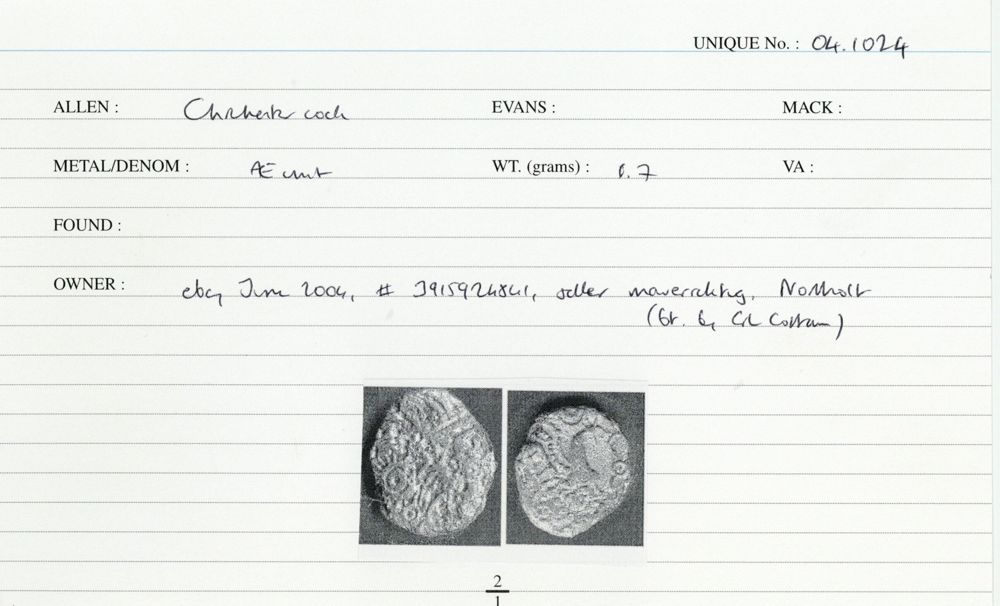 UNIQUE No. : 04.1024
ALLEN : Chichester cock EVANS : MACK :
METAL/DENOM : Æ unit WT. (grams) : 0.7 VA :
FOUND :
OWNER : ebay June 2004, # 3915924841, seller Northolt
(bt. by Cottam)
2
1